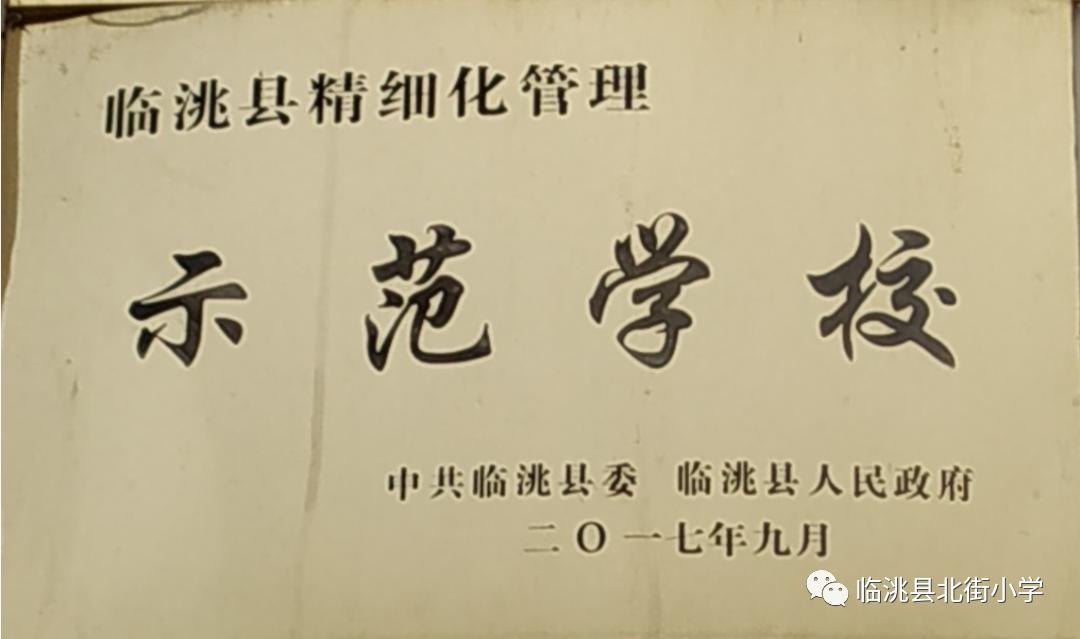 临洮县精细化管理
示范学校
中共临洮县委 临洮县人民政府
二O一七年九月
临洮县北街小学